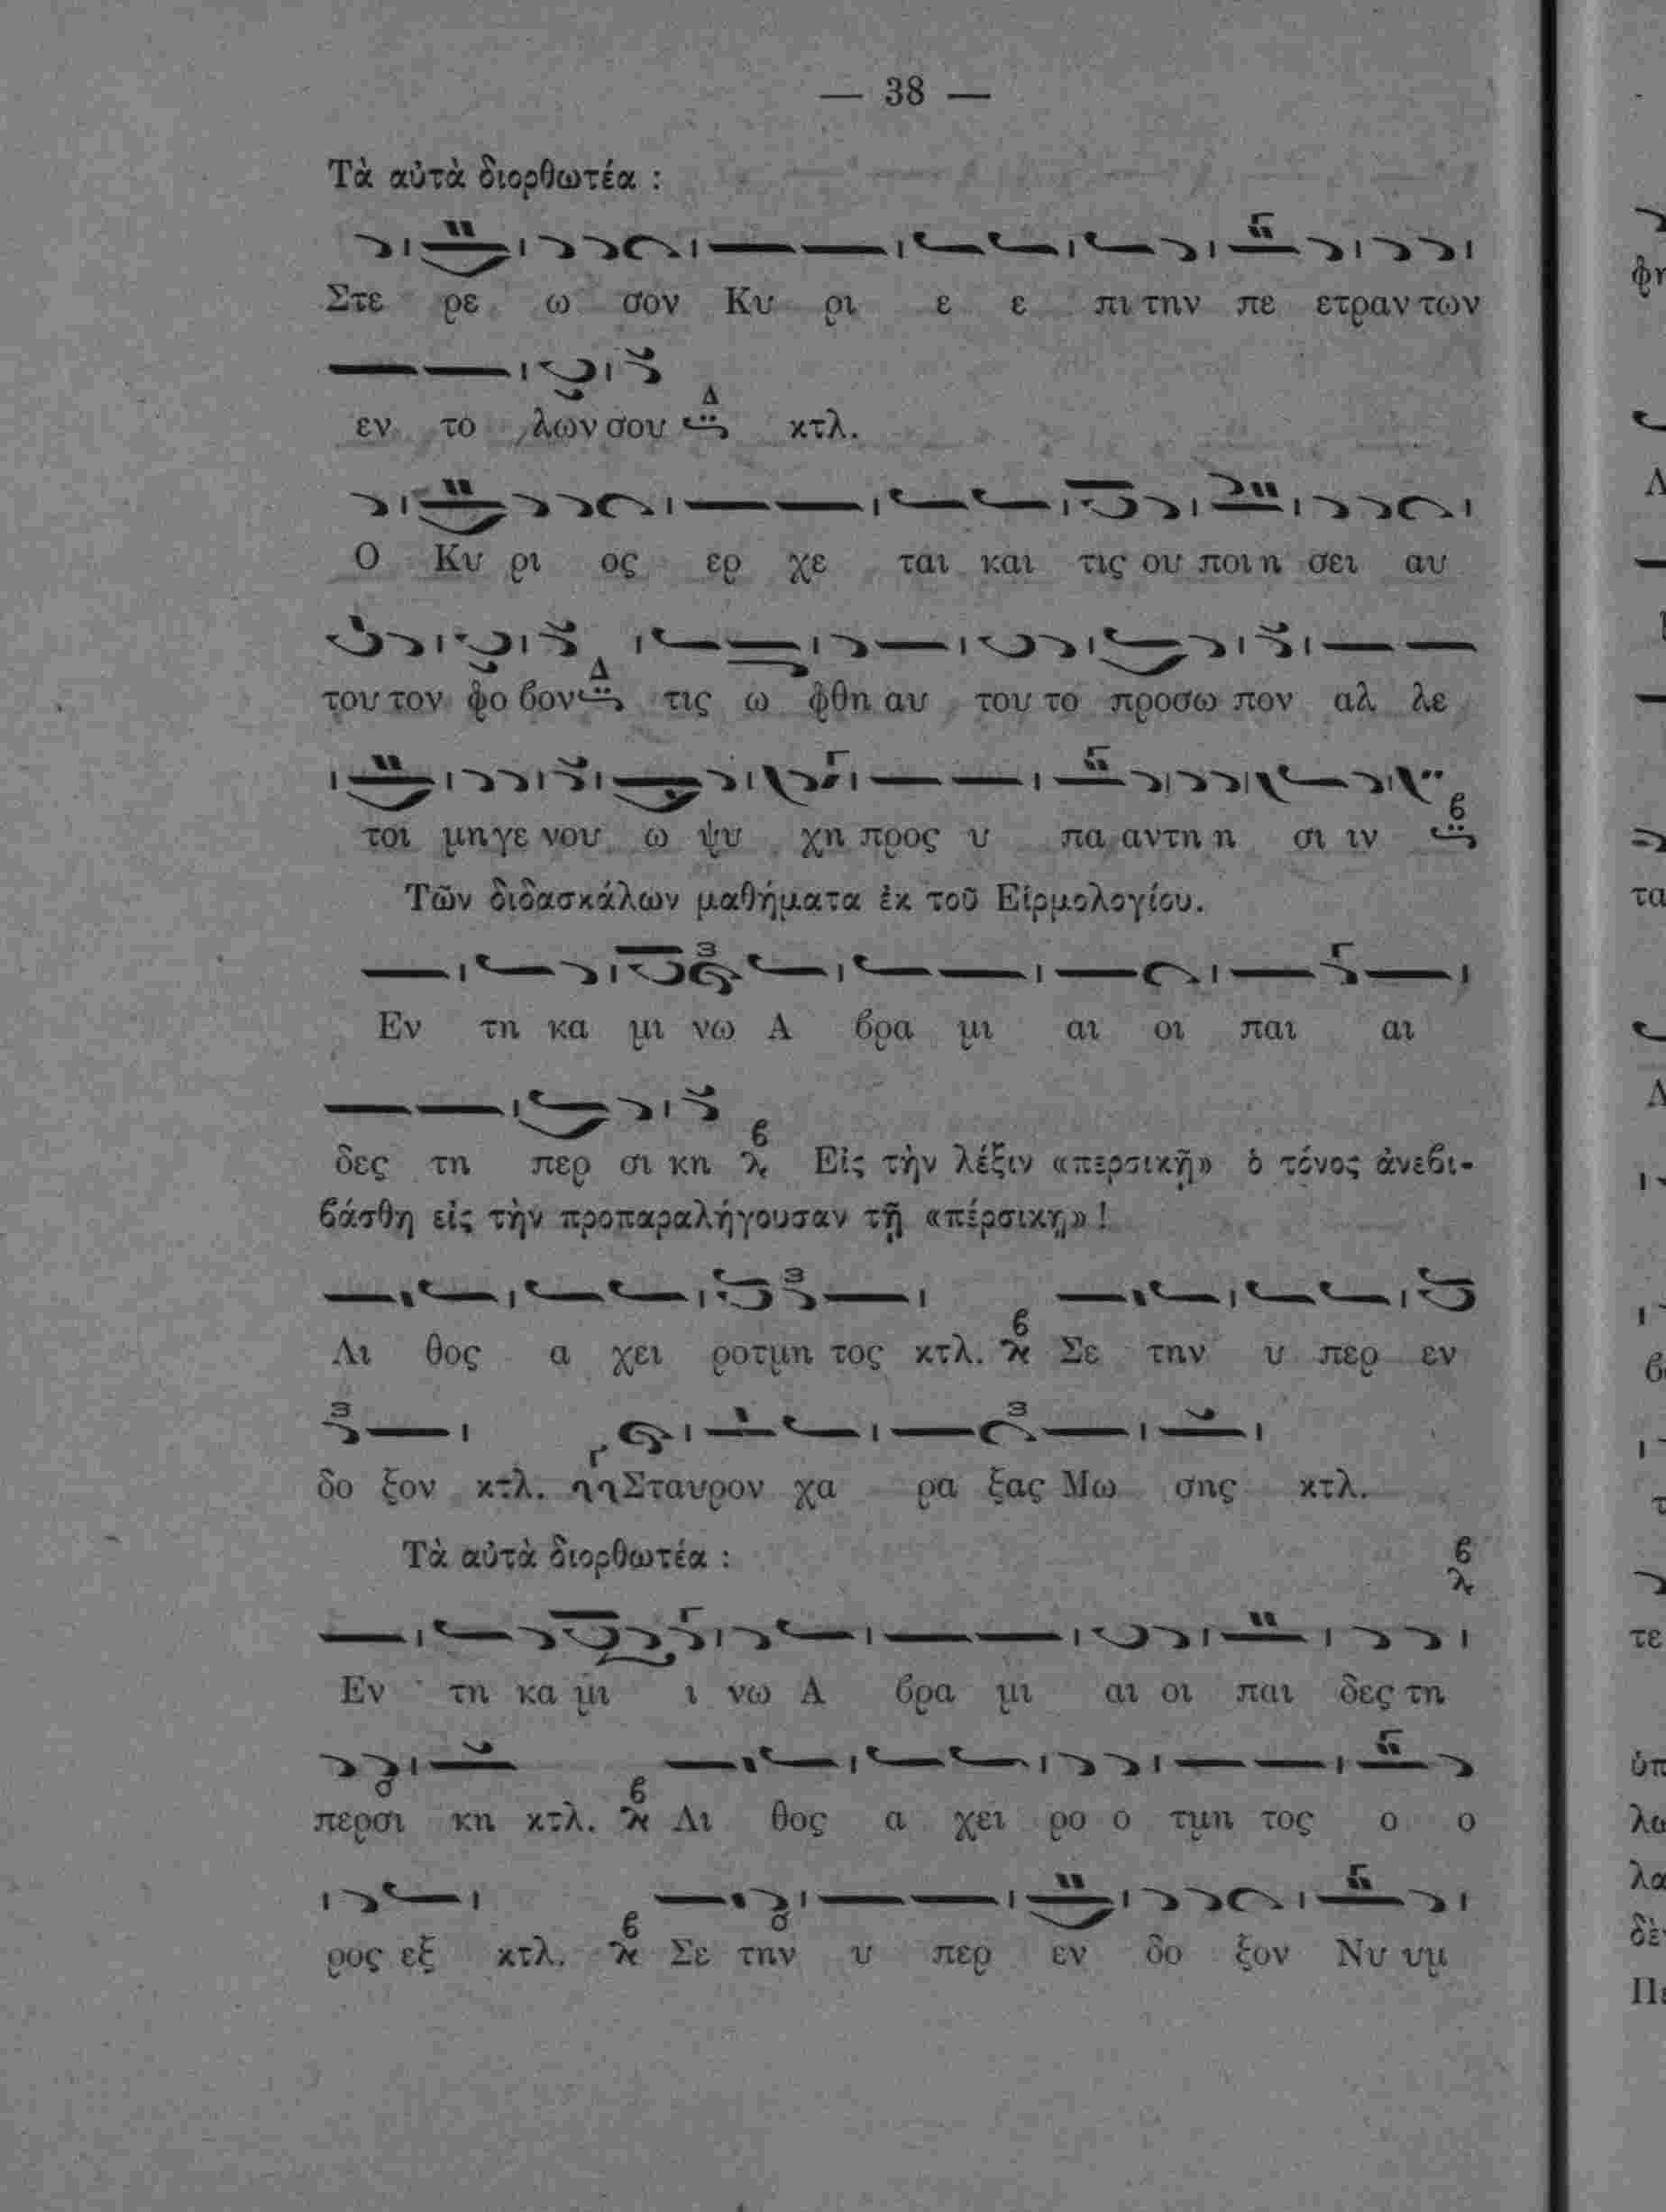 — 38 —
Τὰ αὐτὰ διορθωτέα :
Στε ρε ω σον Κυ ρι ε ε πι την πε ετραν των
εν το λων σου Δ κτλ.
Ο Κυ ρι ος ερ χε ται και τις ου ποι η σει αυ
του τον φο βον Δ τις ω φθη αυ του το προσω πον αλ λε
τοι μη γε νου ω ψυ χη προς υ πα αντη η σι ιν β
Τῶν διδασκάλων μαθήματα ἐκ τοῦ Εἱρμολογίου.
Εν τη κα μι νω Α βρα μι αι οι παι αι
δες τη περ σι κη β Εἰς τὴν λέξιν «περσικῇ» ὁ τόνος ἀνεβι-
βάσθη εἰς τὴν προπαραλήγουσαν τῇ «πέρσικῃ» !
Λι θος α χει ροτμη τος κτλ. β Σε την υ περ εν
δο ξον κτλ. Σταυρον χα ρα ξας Μω σης κτλ.
Τὰ αὐτὰ διορθωτέα : β
Εν τη κα μι ι νω Α βρα μι αι οι παι δες τη
περσι κη κτλ. β Λι θος α χει ρο ο τμη τος ο ο
ρος εξ κτλ. β Σε την υ περ εν δο ξον Νυ υμ